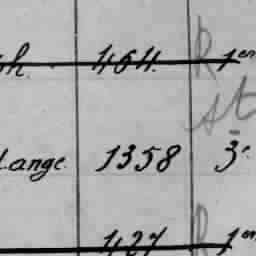 464 R 1er
st
Lange 1358 3e
427 R 1er